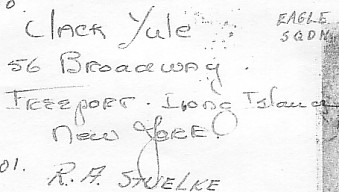 Clack Yule
EAGLE
SQDN
56 Broadway.
FREEPORT. Long Island
New York.
01. R. A. STUELKE